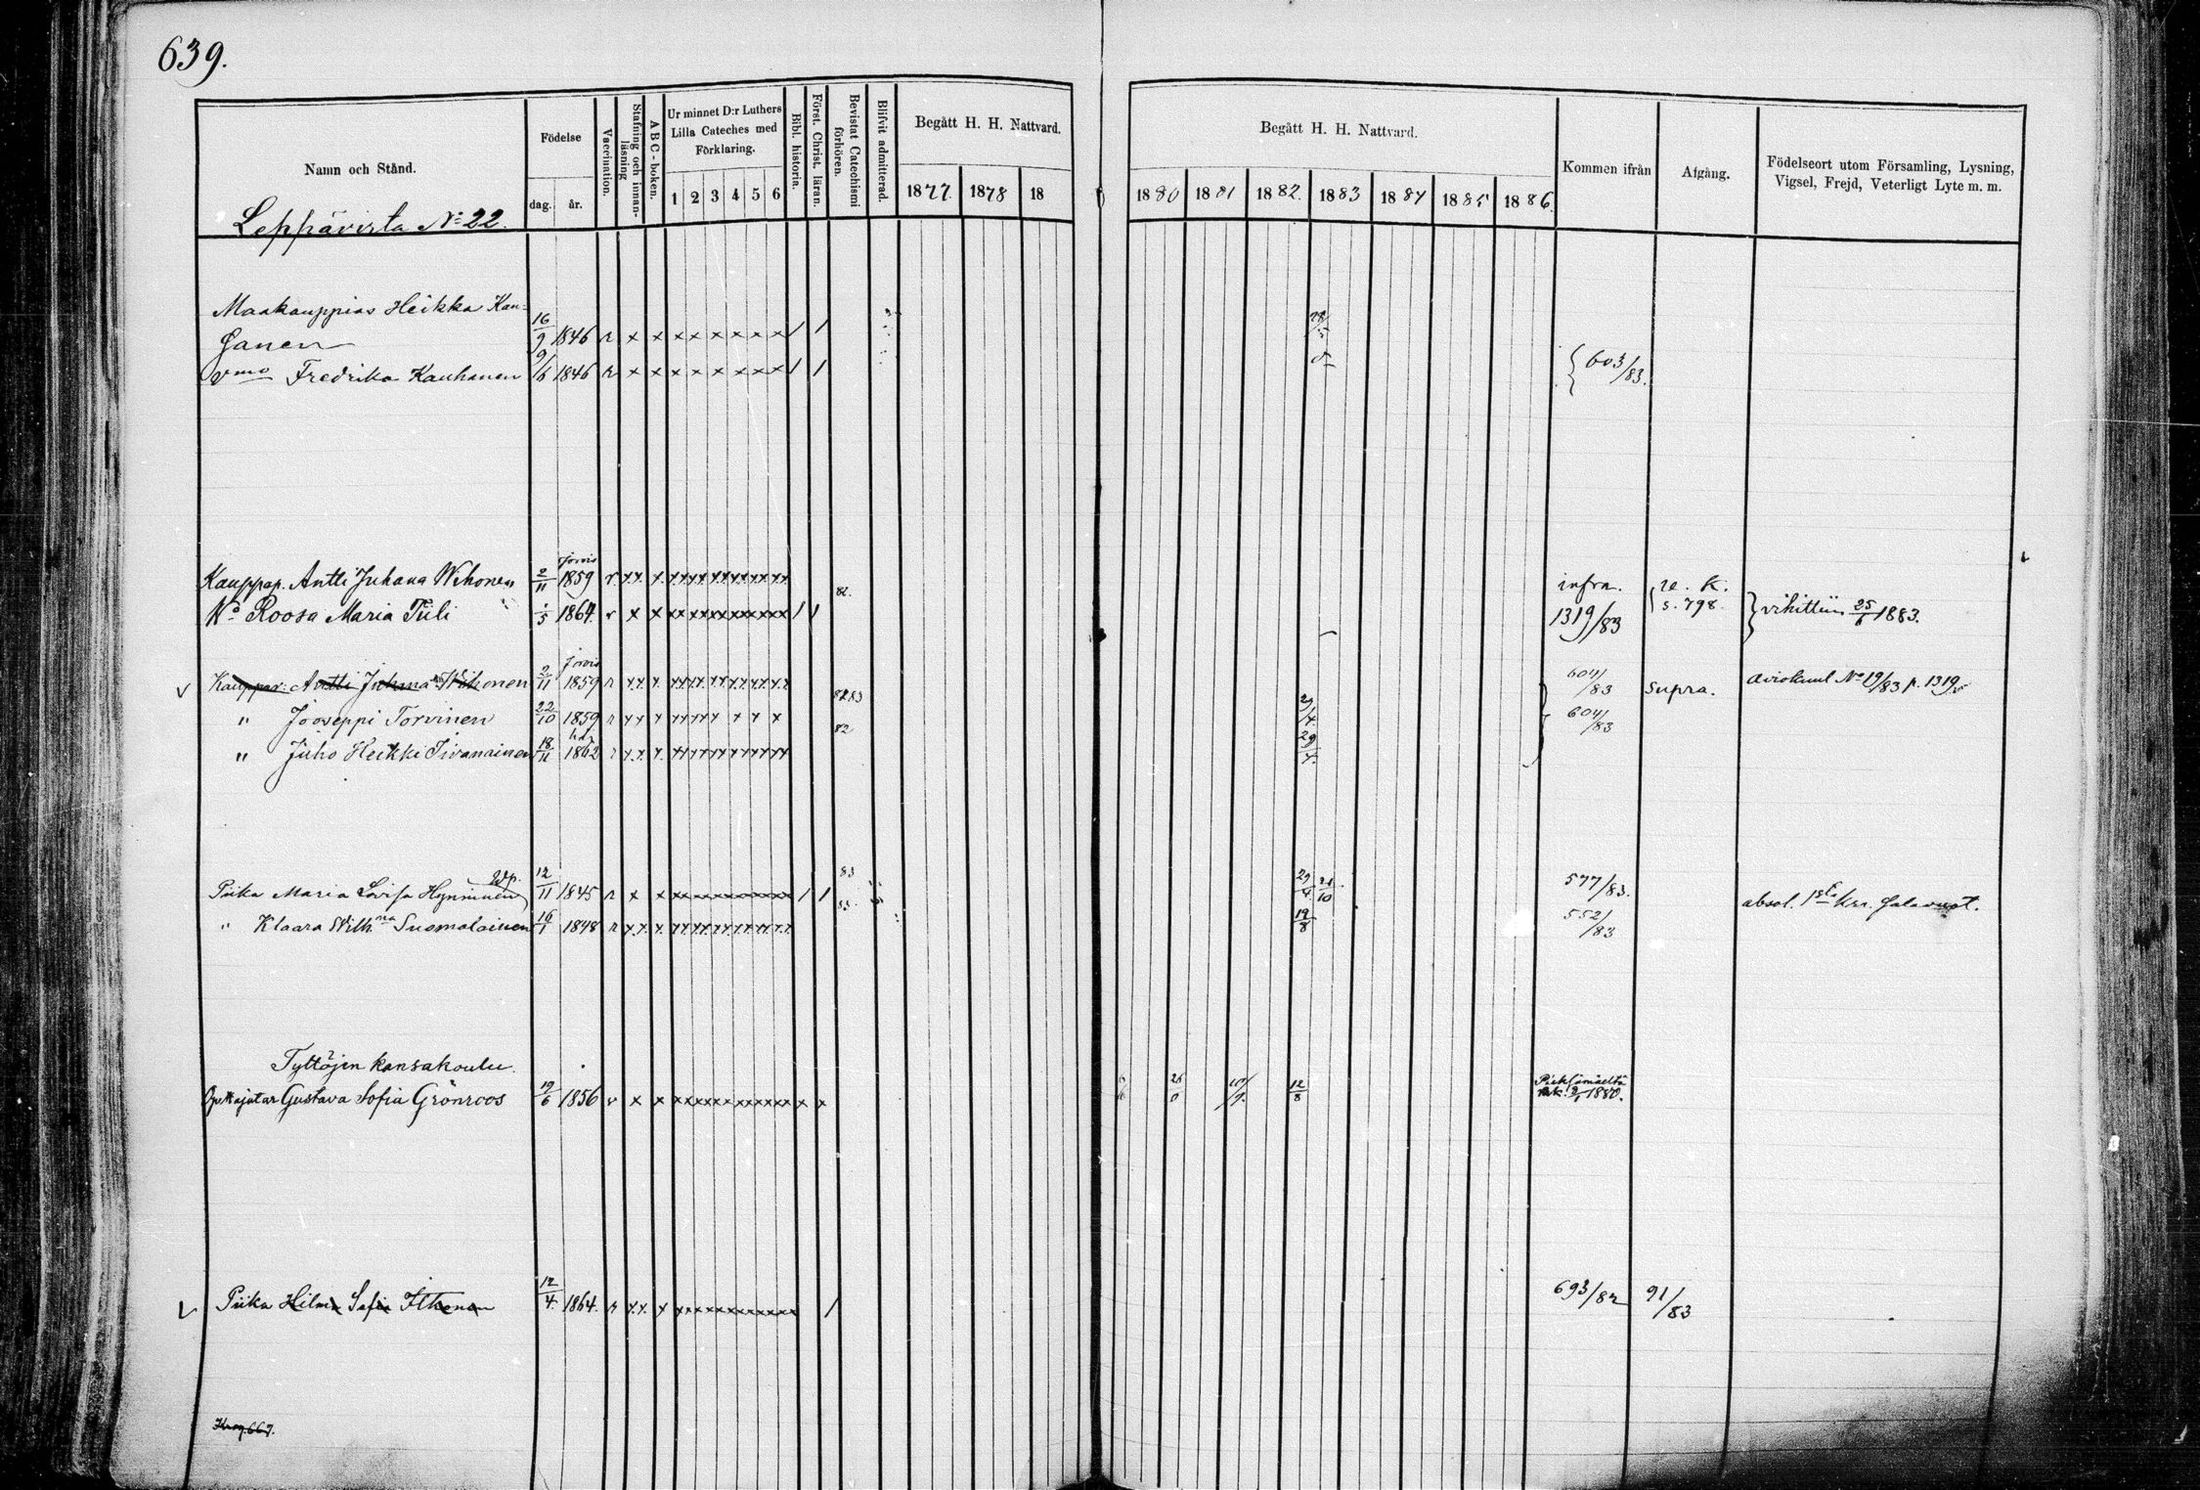 639.
Namn och Stånd.
Födelse
dag. år.
Vaccination.
Stafning och innan-läsning
ABC-boken.
Ur minnet D:r Luthers Lilla Cateches med Förklaring.
1 2 3 4 5 6
Bibl. historia.
Först. Christ. läran.
Bevistat Catechismi förhören.
Blifvit admitterad.
Begått H. H. Nattvard.
1877. 1878 18
Begått H. H. Nattvard.
1880 1881 1882. 1883 1884 1885 1886.
Kommen ifrån
Afgång.
Födelseort utom Församling, Lysning, Vigsel, Frejd, Veterligt Lyte m. m.
Leppävirta No 22.
Maakauppias Heikka Kau-
hanen 16/9 1846
vmo Fredrika Kauhanen 9/6 1846 603/83.
Kauppap. Antti Juhana Wihonen 2/11 1859 infra. s. 798.
Wo Roosa Maria Tiili 1/5 1864. 1319/83 vihittiin 25/6 1883.
Kauppap: Antti Juhana Wihonen 2/11 1859 82 83 604/83 supra. Aviokuul No 19/83 p. 1319
" Jooseppi Torvinen 22/10 1859 82 604/83
" Juho Heikki Iivanainen 18/11 1862 29/4
Piika Maria Lovisa Hynninen 12/11 1845 83 29/4 577/83. absol.
" Klaara Wilhna Suomalainen 16/1 1848 19/8 552/83
Tyttöjen kansakoulu.
Opettajatar Gustava Sofia Grönroos 19/6 1856 12/8 Pieksämäeltä 1880.
Piika Hilma Sofia Itkonen 12/4 1864. 693/82 91/83